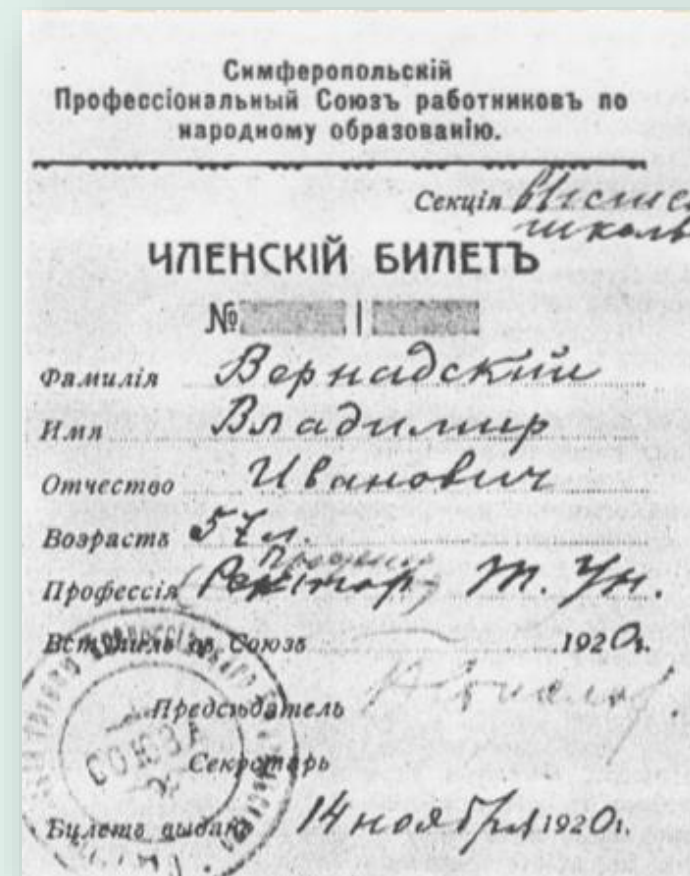 Симферопольскій
Профессіональный Союзъ работниковъ по
народному образованію.
Секція Высшей
школы
ЧЛЕНСКІЙ БИЛЕТЪ
№
Фамилія Вернадский
Имя Владимир
Отчество Иванович
Возрастъ 57 л.
Профессія (Ректор) Т. Ун.
Вступилъ въ Союзъ 1920 г.
Предсѣдатель
Секретарь
Билетъ выданъ 14 ноября 1920 г.
СОЮЗ